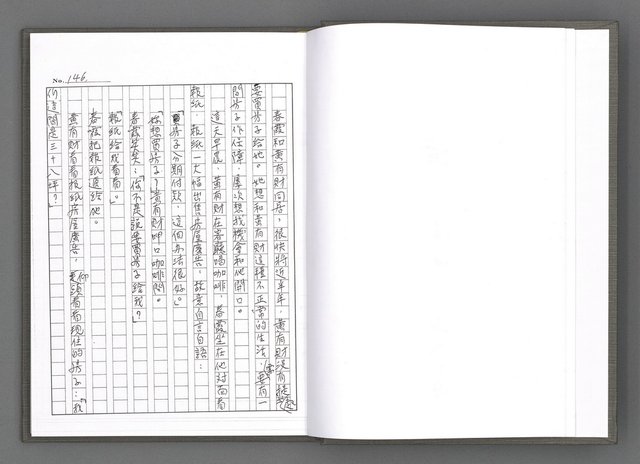 No. 146
春霞和黃有財同居,很快將近半年,黃有財沒有提起
要買房子給她。她想和黃有財這種不正常的生活,要有一
間房子作住障,屢次想找機會和他開口。
這天早晨,黃有財在客廳喝咖啡,春霞坐在他對面看
報紙,報紙一大幅出售房屋廣告,故意自言自語:
「買房子分期付款,這個办法很好。」
「你想買房子?」黃有財呷口咖啡問。
春霞笑笑:「你不是說要買房子給我?」
「報紙給我看看。」
春霞把報紙遞給他。
黃有財看看報紙房屋廣告,仰頭看看現住的房子:「我
们這間是三十八坪?」